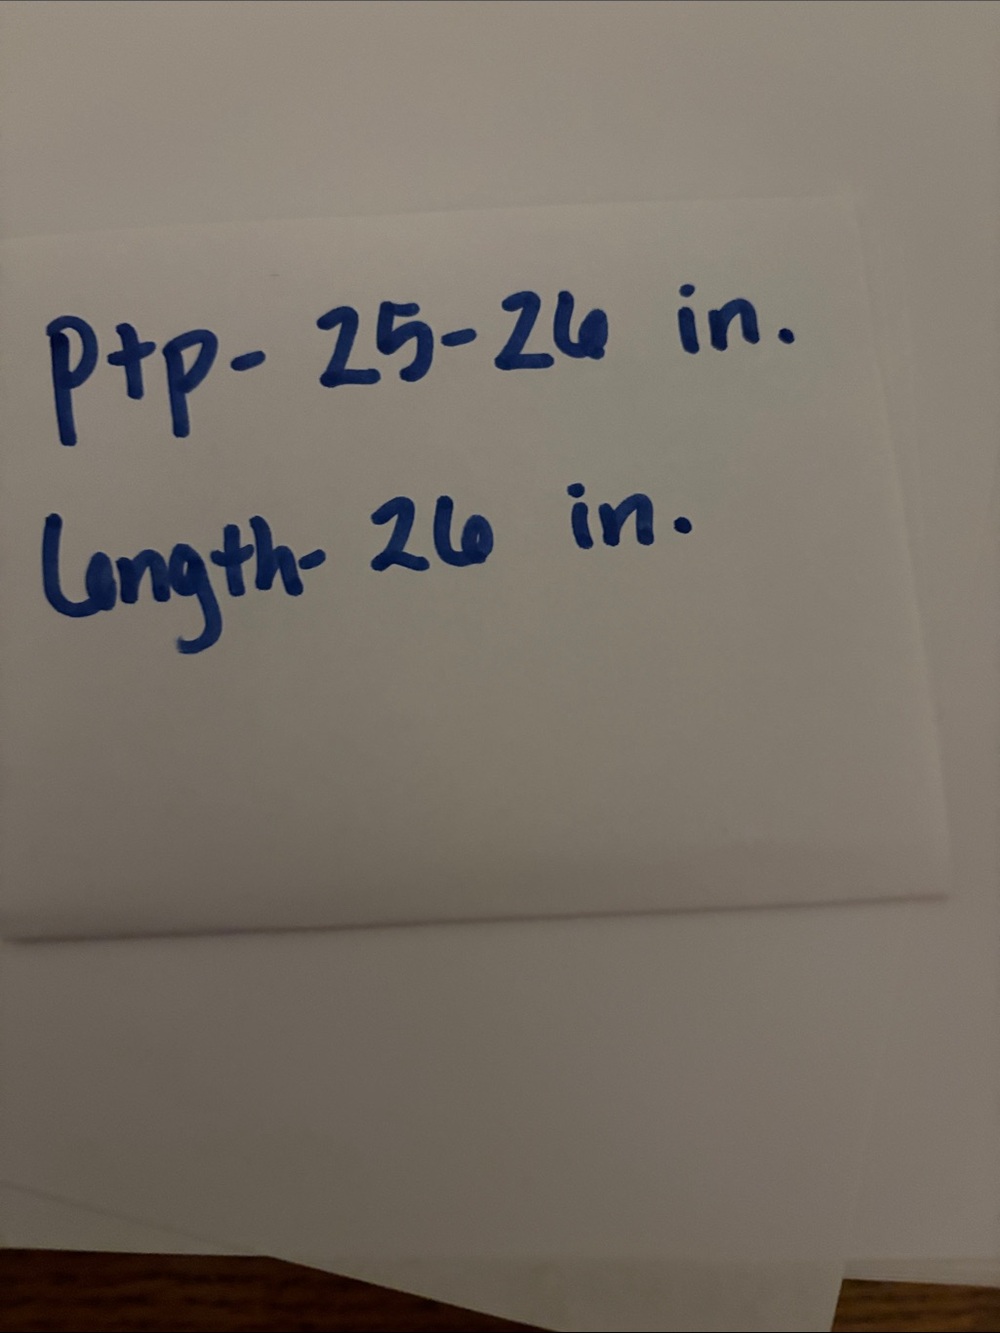 Ptp- 25-26 in.
Length- 26 in.